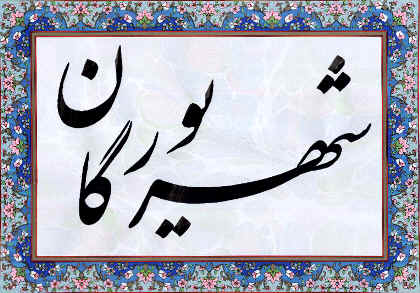 شهریورگان